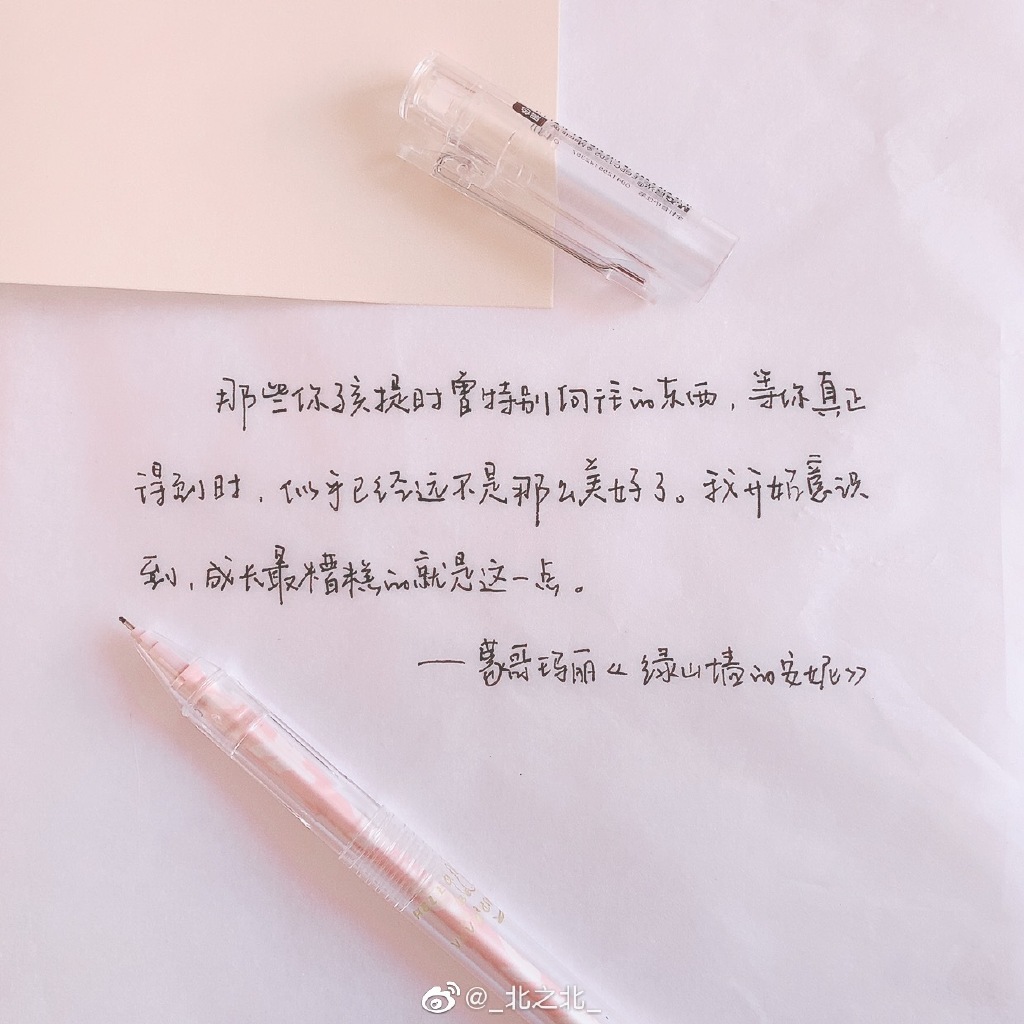 那些你孩提时曾特别向往的东西，等你真正
得到时，似乎已经远不是那么美好了。我开始意识
到，成长最糟糕的就是这一点。
——蒙哥玛丽《绿山墙的安妮》
@_北之北_